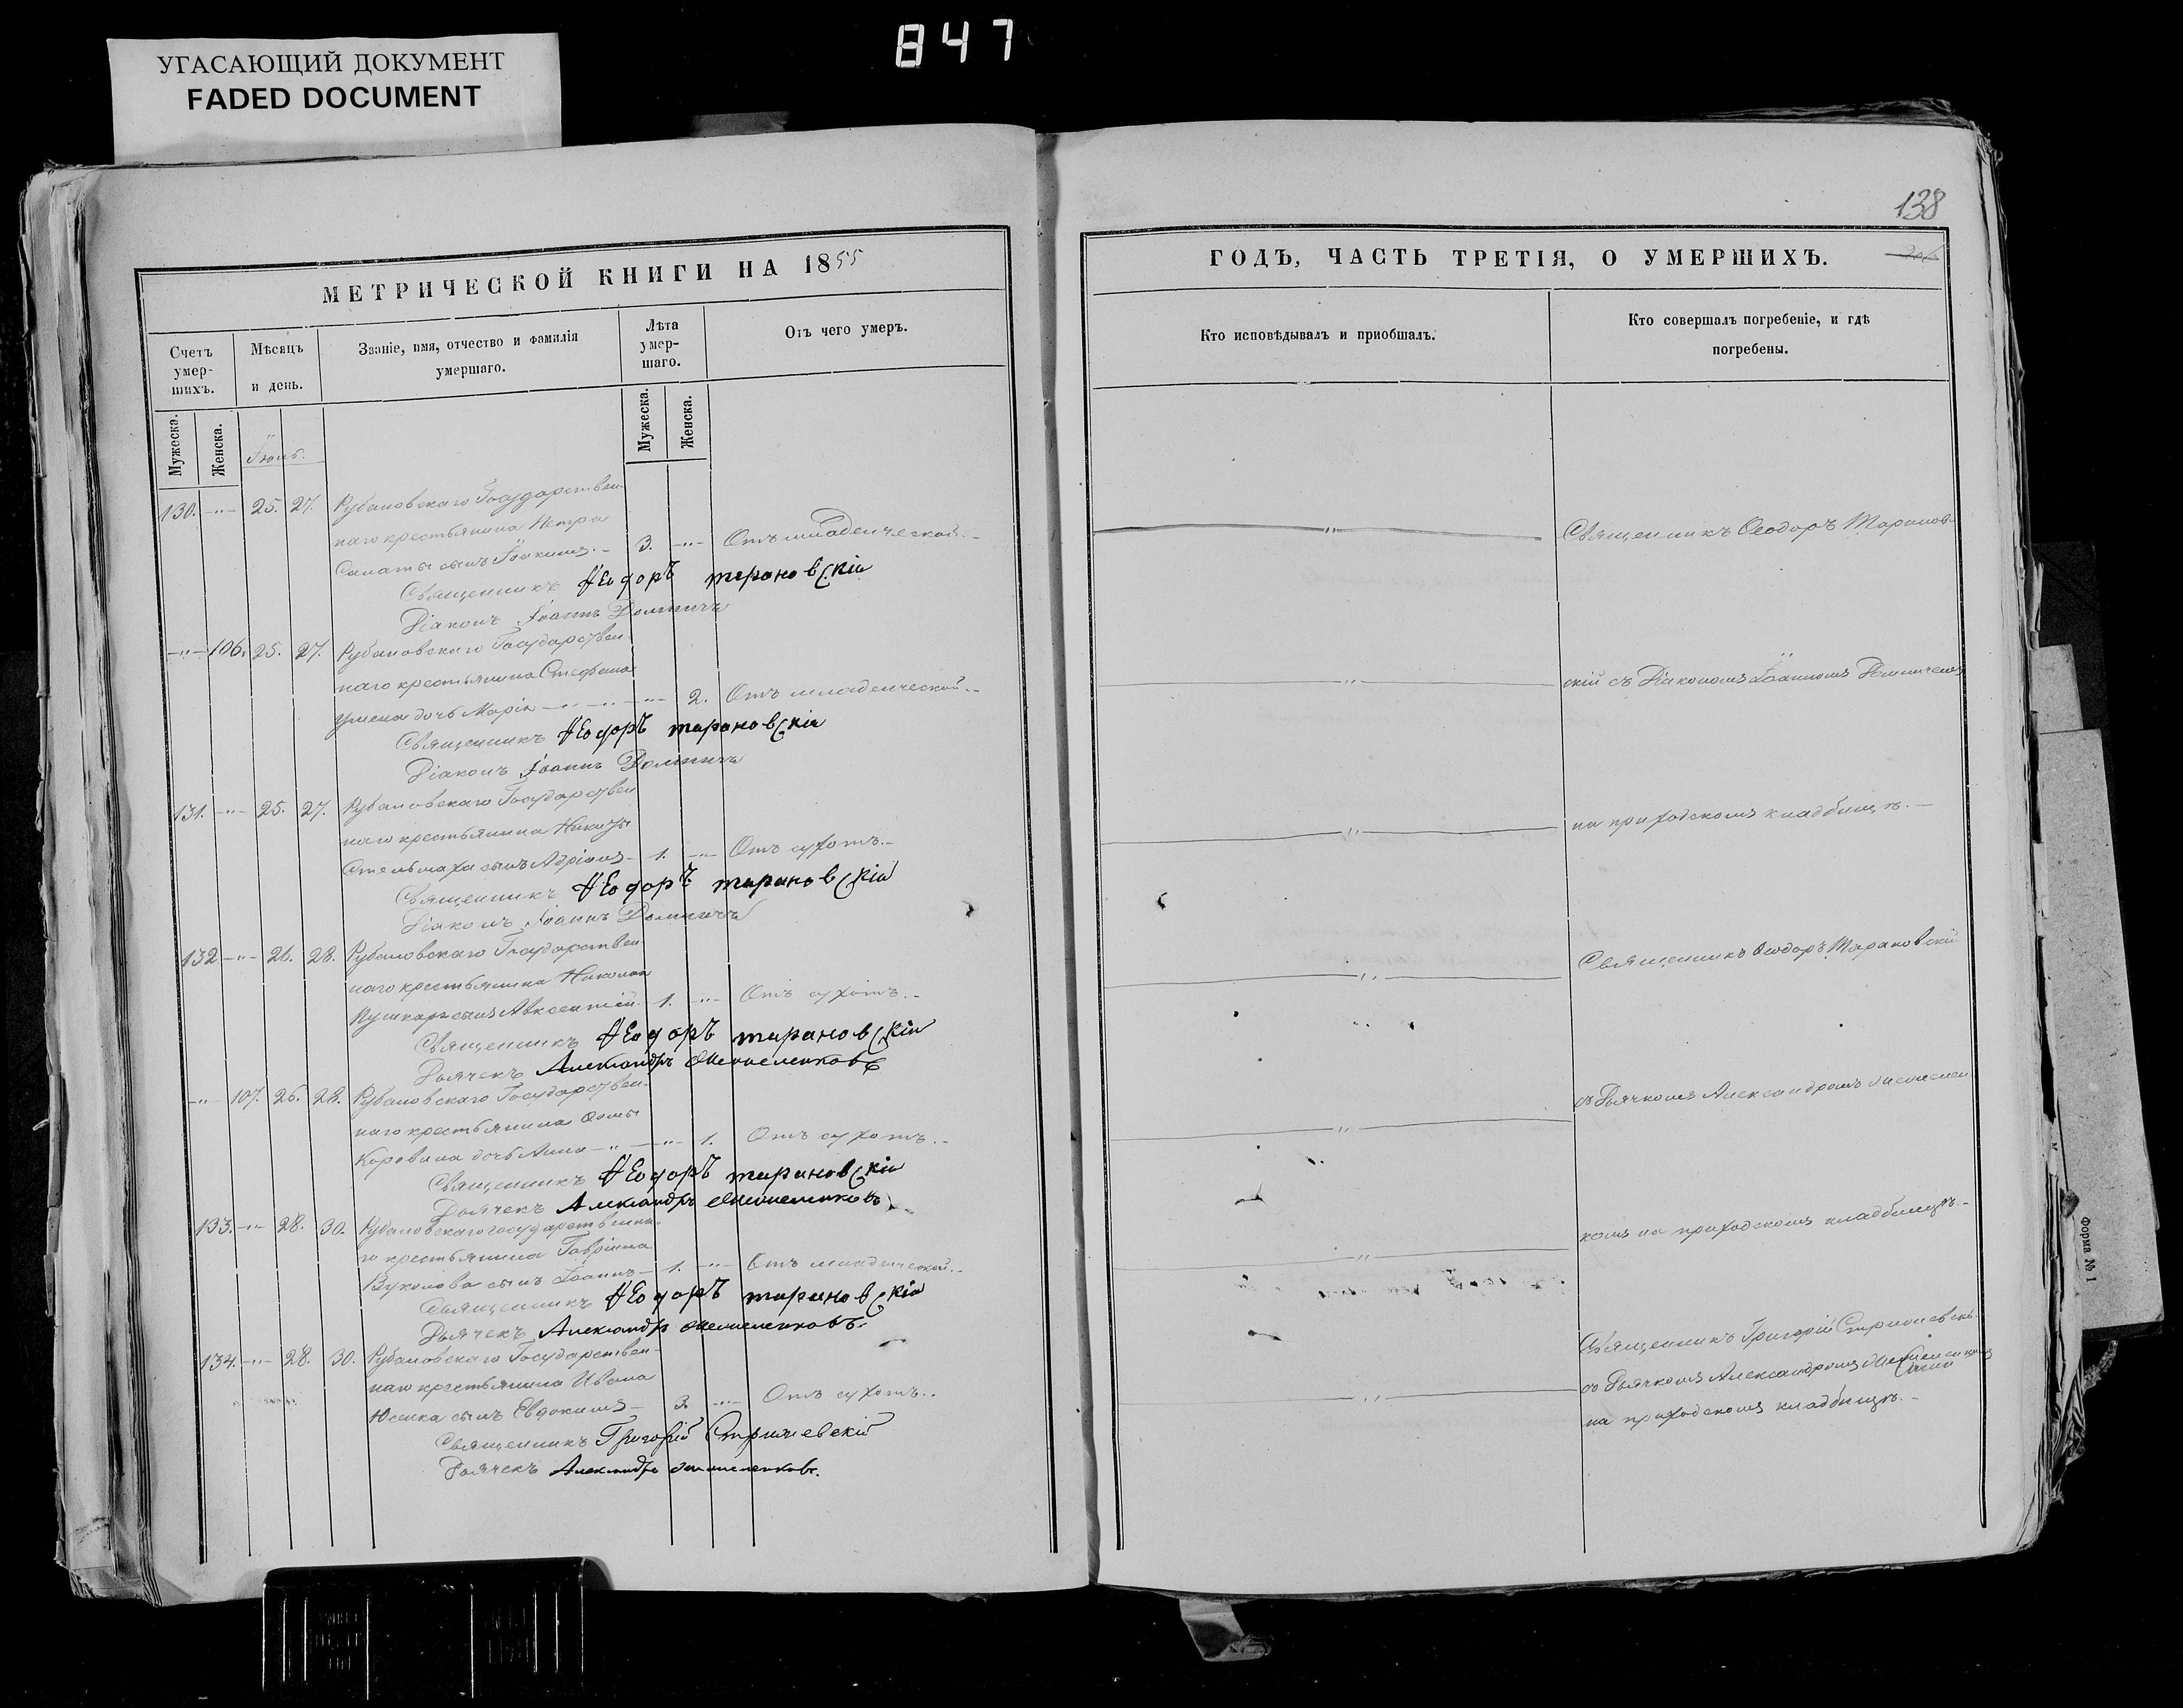 847
УГАСАЮЩИЙ ДОКУМЕНТ
FADED DOCUMENT
МЕТРИЧЕСКОЙ КНИГИ НА 1855
Счетъ умер-шихъ.
Мѣсяцъ и день.
Званіе, имя, отчество и фамилія умершаго.
Лѣта умер-шаго.
Отъ чего умеръ.
Мужеска.
Женска.
Мужеска.
Женска.
Іюнь.
130. -"- 25. 27. Рубановскаго Государствен-
наго крестьянина Петра
Салаты сынъ Іоакимъ. - 3. -"- Отъ младенческой. -
Священникъ Ѳеодоръ Тарановскій
Діаконъ Іоаннъ Доминичъ
-"- 106. 25. 27. Рубановскаго Государствен-
наго крестьянина Стефана
дочь Марія -"- 2. Отъ младенческой. -
Священникъ Ѳеодоръ Тарановскій
Діаконъ Іоаннъ Доминичъ
131. -"- 25. 27. Рубановскаго Государствен
наго крестьянина Никиты
Стельмаха сынъ Адріанъ - 1. -"- Отъ сухотъ. -
Священникъ Ѳеодоръ Тарановскій
Діаконъ Іоаннъ Доминичъ
132 -"- 26. 28. Рубановскаго Государствен-
наго крестьянина Николая
Пушкаря сынъ Авксентій - 1. -"- Отъ сухотъ. -
Священникъ Ѳеодоръ Тарановскій
Дьячекъ Александръ
-"- 107. 26. 28. Рубановскаго Государствен-
наго крестьянина Ѳомы
Коровина дочь Анна -"- 1. Отъ сухотъ. -
Священникъ Ѳеодоръ Тарановскій
Дьячекъ Александръ
133. -"- 28. 30. Рубановскаго государственна-
го крестьянина Гавріила
Вуколова сынъ Іоаннъ - 1. -"- Отъ младенческой. -
Священникъ Ѳеодоръ Тарановскій
Дьячекъ Александръ
134. -"- 28. 30. Рубановскаго Государствен-
наго крестьянина Ивана
сынъ Евдокимъ - -"- Отъ сухотъ. -
Священникъ Григорій
Дьячекъ Александръ
138
ГОДЪ, ЧАСТЬ ТРЕТІЯ, О УМЕРШИХЪ.
Кто исповѣдывалъ и приобшалъ.
Кто совершалъ погребеніе, и гдѣ
погребены.
Священникъ Ѳеодоръ Таранов-
скій съ Діакономъ Іоанномъ Доминичемъ
на приходскомъ кладбищѣ. -
Священникъ Ѳеодоръ Тарановскій
съ Дьячкомъ Александромъ
комъ на приходскомъ кладбищѣ. -
Священникъ Григорій
съ Дьячкомъ Александромъ
на приходскомъ кладбищѣ. -
Форма № 1